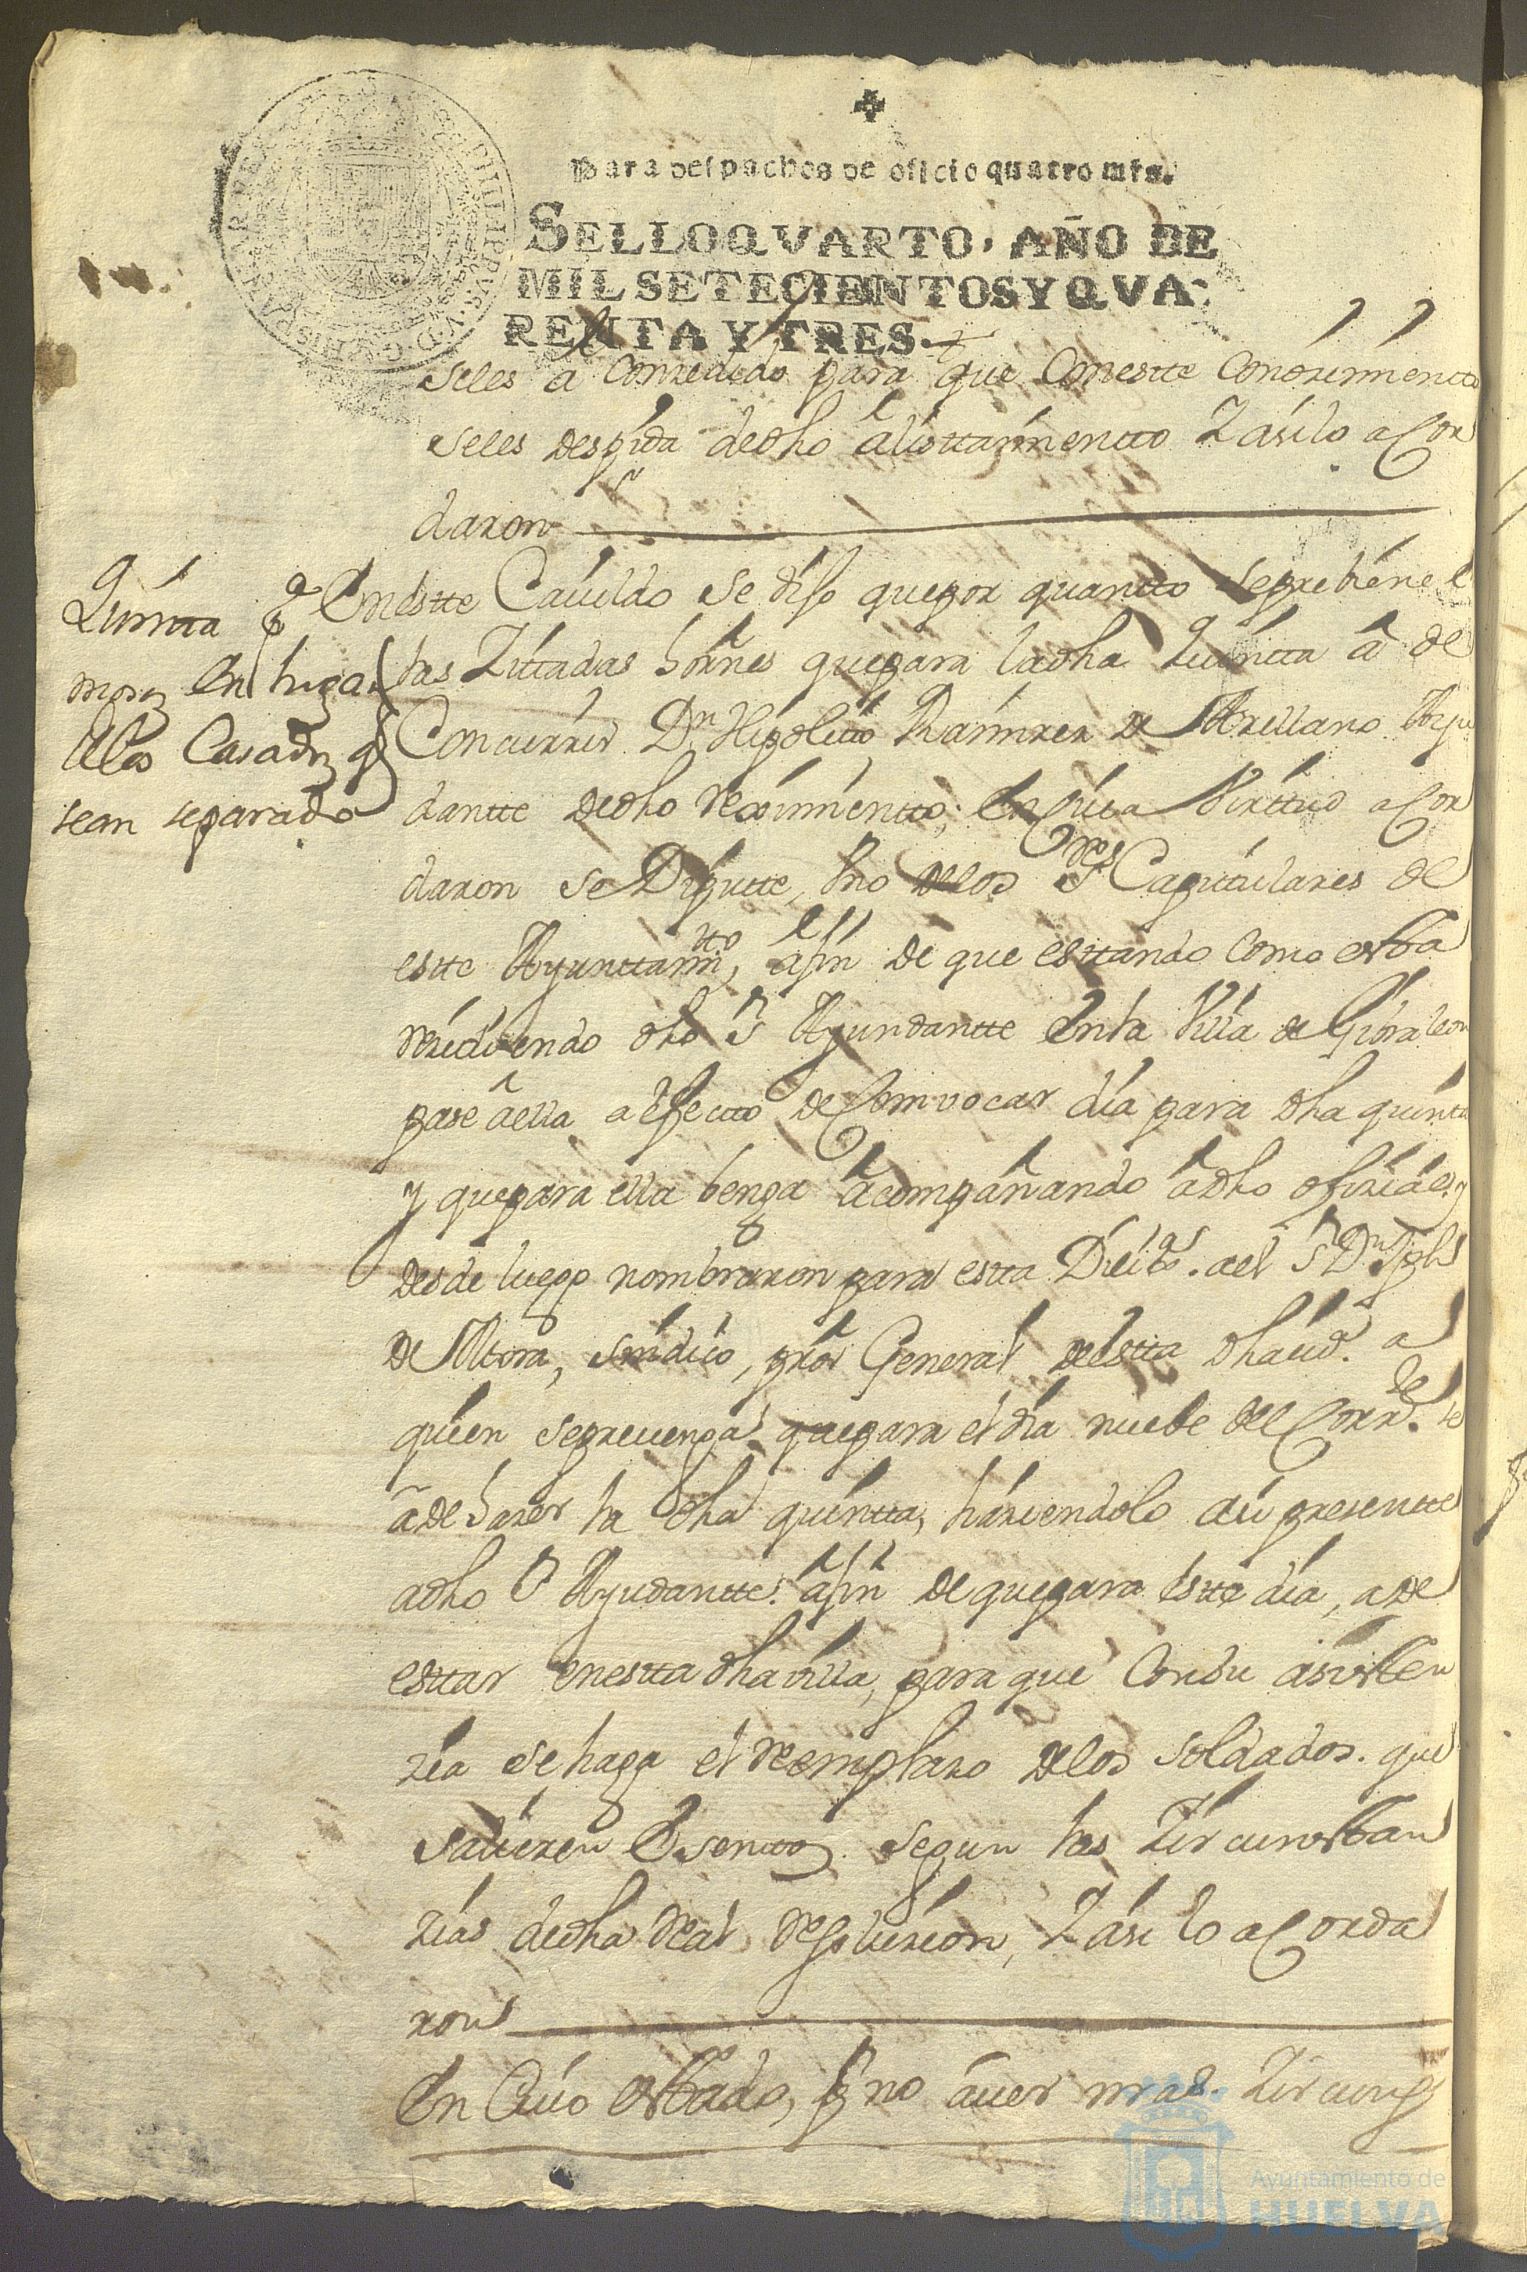 Para despachos de oficio quatro mrs.
SELLO QVARTO, AÑO DE
MIL SETECIENTOS Y QVA-
RENTA Y TRES.
seles a Conzedido para que Conestte Conozimientto
seles despida dedho alisttamientto Zasilo aCor
daron
Quintta pa
mozos En lugar
delos Casados q
sean separados
Enestte Cauildo se dijo quepor quantto seprebiene e
las Zittadas hornes quepara ladha Quintta â de
Concurrir Dn Hipolitto Ramirez de Arellano Ayu
dantte dedho reximientto, En Cuia Virttud aCor
daron se Diputte, Vno delos Sres Capitulares de
este Ayunttamto, afin de que esttando como estta
residiendo dho Sr Ayundantte Enla Villa de Gibraleon
pase âella aefectto deComvocar dia para dha quintta
y quepara ella benga âcompañando âdho ofizial, y
desde luego nombraron para estta Dilixas. ael Sr Dn Jph
de Mora, sindico, pror General deestta dhauia. a
quien seprevenga quepara el dia nuebe del Corrte. se
âdehazer la dha quintta, haziendolo asi presentte
adho Sr Ayudantte. afin dequepara estte dia, ade
esttar enestta dhavilla, para que Consu asisten
zia sehaga el reemplazo delos soldados. que
salieren Esentos segun las Zircunstan
zias dedha Real resoluzion, Zasi lo aCorda
ron
En Cuio esttado, pr no auer mas. Zircunsp
Ayuntamiento de
HUELVA